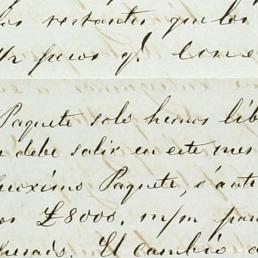 los restantes que los
pesos q! cone
Paquete solo hemos lib
debe salir en este mes
próximo Paquete, é ante
os £8000. m/m par
El cambio